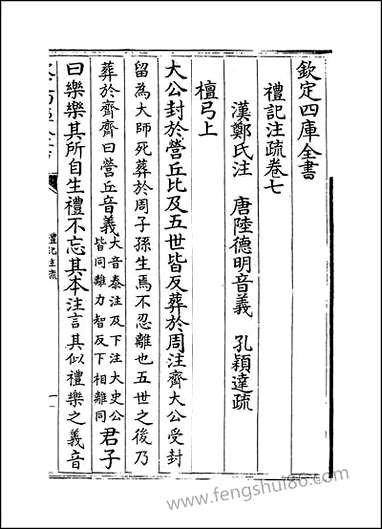 欽定四庫全書
禮記注疏卷七
漢鄭氏注 唐陸德明音義 孔穎達疏
檀弓上
大公封於營丘比及五世皆反葬於周注齊大公受封
留為大師死葬於周子孫生焉不忍離也五世之後乃
葬於齊齊曰營丘音義大音泰注及下注大史公皆同離力智反下相離同君子
曰樂樂其所自生禮不忘其本注言其似禮樂之義音
禮記注疏
一
www.fengshui86.com